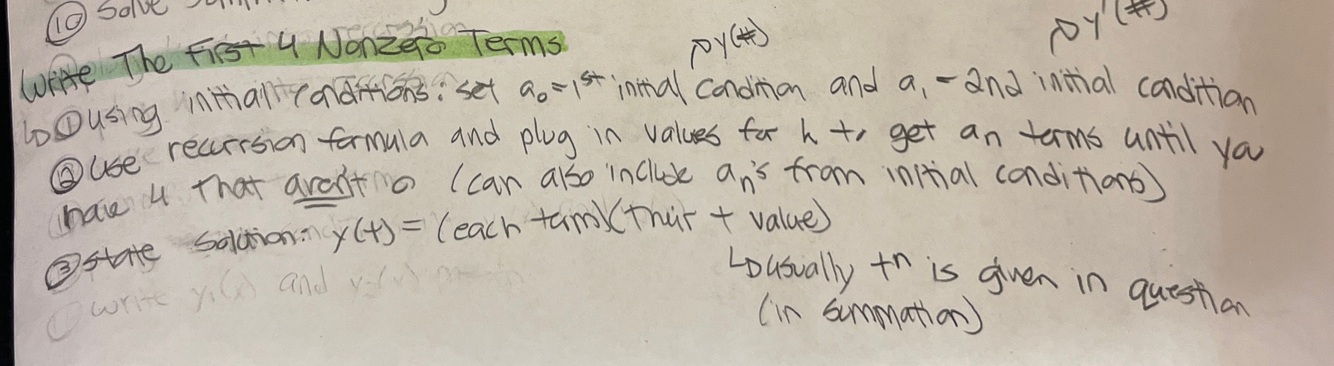 ⑩ Solve
Write The First 4 Nonzero Terms
↳ ① Using initial conditions: set a₀ = 1st initial condition and a₁ = 2nd initial condition
↗ y(#)
↗ y'(#)
② Use recurrsion formula and plug in values for n to get an terms until you
have 4 that aren't 0 (can also include aₙ's from initial conditions)
③ State solution: y(t) = (each term)(their t value)
↳ usually tⁿ is given in question
(in summation)
write y₁(x) and